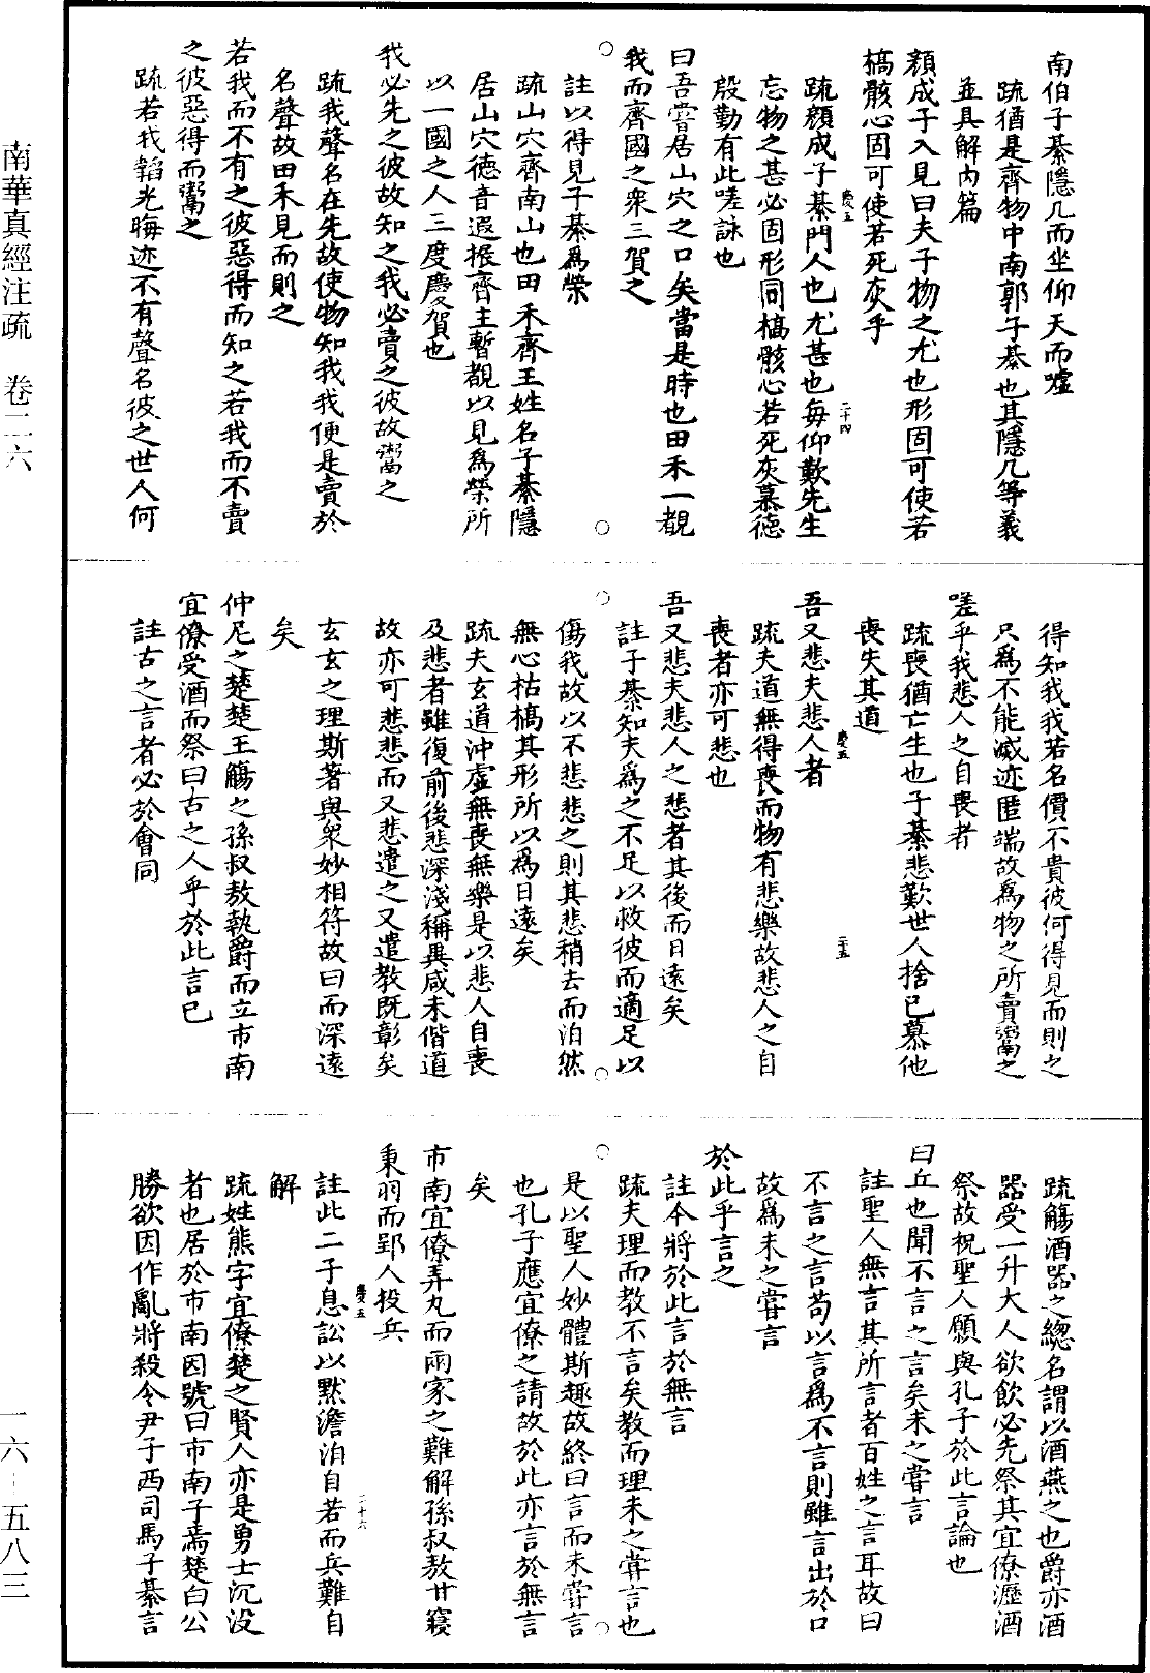 南伯子綦隱几而坐仰天而噓
疏猶是齊物中南郭子綦也其隱几等義
並具解内篇
顏成子入見曰夫子物之尤也形固可使若
槁骸心固可使若死灰乎
疏顏成子綦門人也尤甚也每仰歎先生
忘物之甚必固形同槁骸心若死灰慕德
殷勤有此嗟詠也
曰吾嘗居山穴之口矣當是時也田禾一覩
我而齊國之衆三賀之
註以得見子綦爲榮
疏山穴齊南山也田禾齊王姓名子綦隱
居山穴德音遐振齊主暫覩以見爲榮所
以一國之人三度慶賀也
我必先之彼故知之我必賣之彼故鬻之
疏我聲名在先故使物知我我便是賣於
名聲故田禾見而則之
若我而不有之彼惡得而知之若我而不賣
之彼惡得而鬻之
疏若我韜光晦迹不有聲名彼之世人何
得知我我若名價不貴彼何得見而則之
只爲不能滅迹匿端故爲物之所賣鬻之
嗟乎我悲人之自喪者
疏喪猶亡生也子綦悲歎世人捨已慕他
喪失其道
吾又悲夫悲人者
疏夫道無得喪而物有悲樂故悲人之自
喪者亦可悲也
吾又悲夫悲人之悲者其後而日遠矣
註子綦知夫爲之不足以救彼而適足以
傷我故以不悲悲之則其悲稍去而泊然
無心枯槁其形所以爲日遠矣
疏夫玄道沖虛無喪無樂是以悲人自喪
及悲者雖復前後悲深淺稱異咸未偕道
故亦可悲悲而又悲遣之又遣教既彰矣
玄玄之理斯著與衆妙相符故曰而深遠
矣
仲尼之楚楚王觴之孫叔敖執爵而立市南
宜僚受酒而祭曰古之人乎於此言已
註古之言者必於會同
疏觴酒器之總名謂以酒燕之也爵亦酒
器受一升大人欲飲必先祭其宜僚瀝酒
祭故祝聖人願與孔子於此言論也
曰丘也聞不言之言矣未之嘗言
註聖人無言其所言者百姓之言耳故曰
不言之言苟以言爲不言則雖言出於口
故爲未之嘗言
於此乎言之
註今將於此言於無言
疏夫理而教不言矣教而理未之嘗言也
是以聖人妙體斯趣故終曰言而未嘗言
也孔子應宜僚之請故於此亦言於無言
矣
市南宜僚弄丸而兩家之難解孫叔敖甘寢
秉羽而郢人投兵
註此二子息訟以默澹泊自若而兵難自
解
疏姓熊字宜僚楚之賢人亦是勇士沉没
者也居於市南因號曰市南子焉楚白公
勝欲因作亂將殺令尹子西司馬子綦言
慶五
二十四
慶五
二十五
慶五
二十六
南華真經注疏 卷二六
一六-五八三